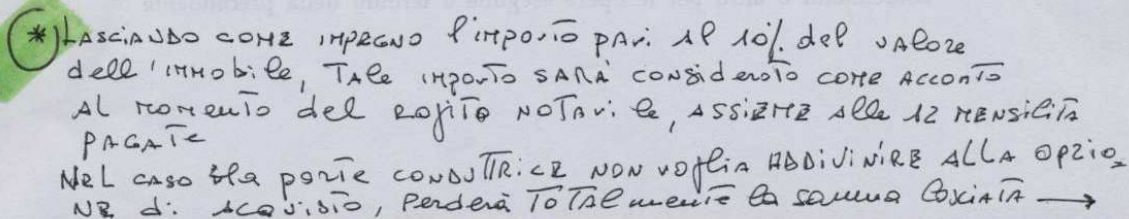 (*) LASCIANDO COME IMPEGNO l'importo pari al 10% del valore
dell'immobile, Tale importo SARÀ considerato come acconto
al momento del rogito notarile, assieme alle 12 mensilità
pagate
Nel caso la parte conduttrice non voglia addivinire alla opzio=
ne di acquisto, perderà totalmente la somma lasciata →